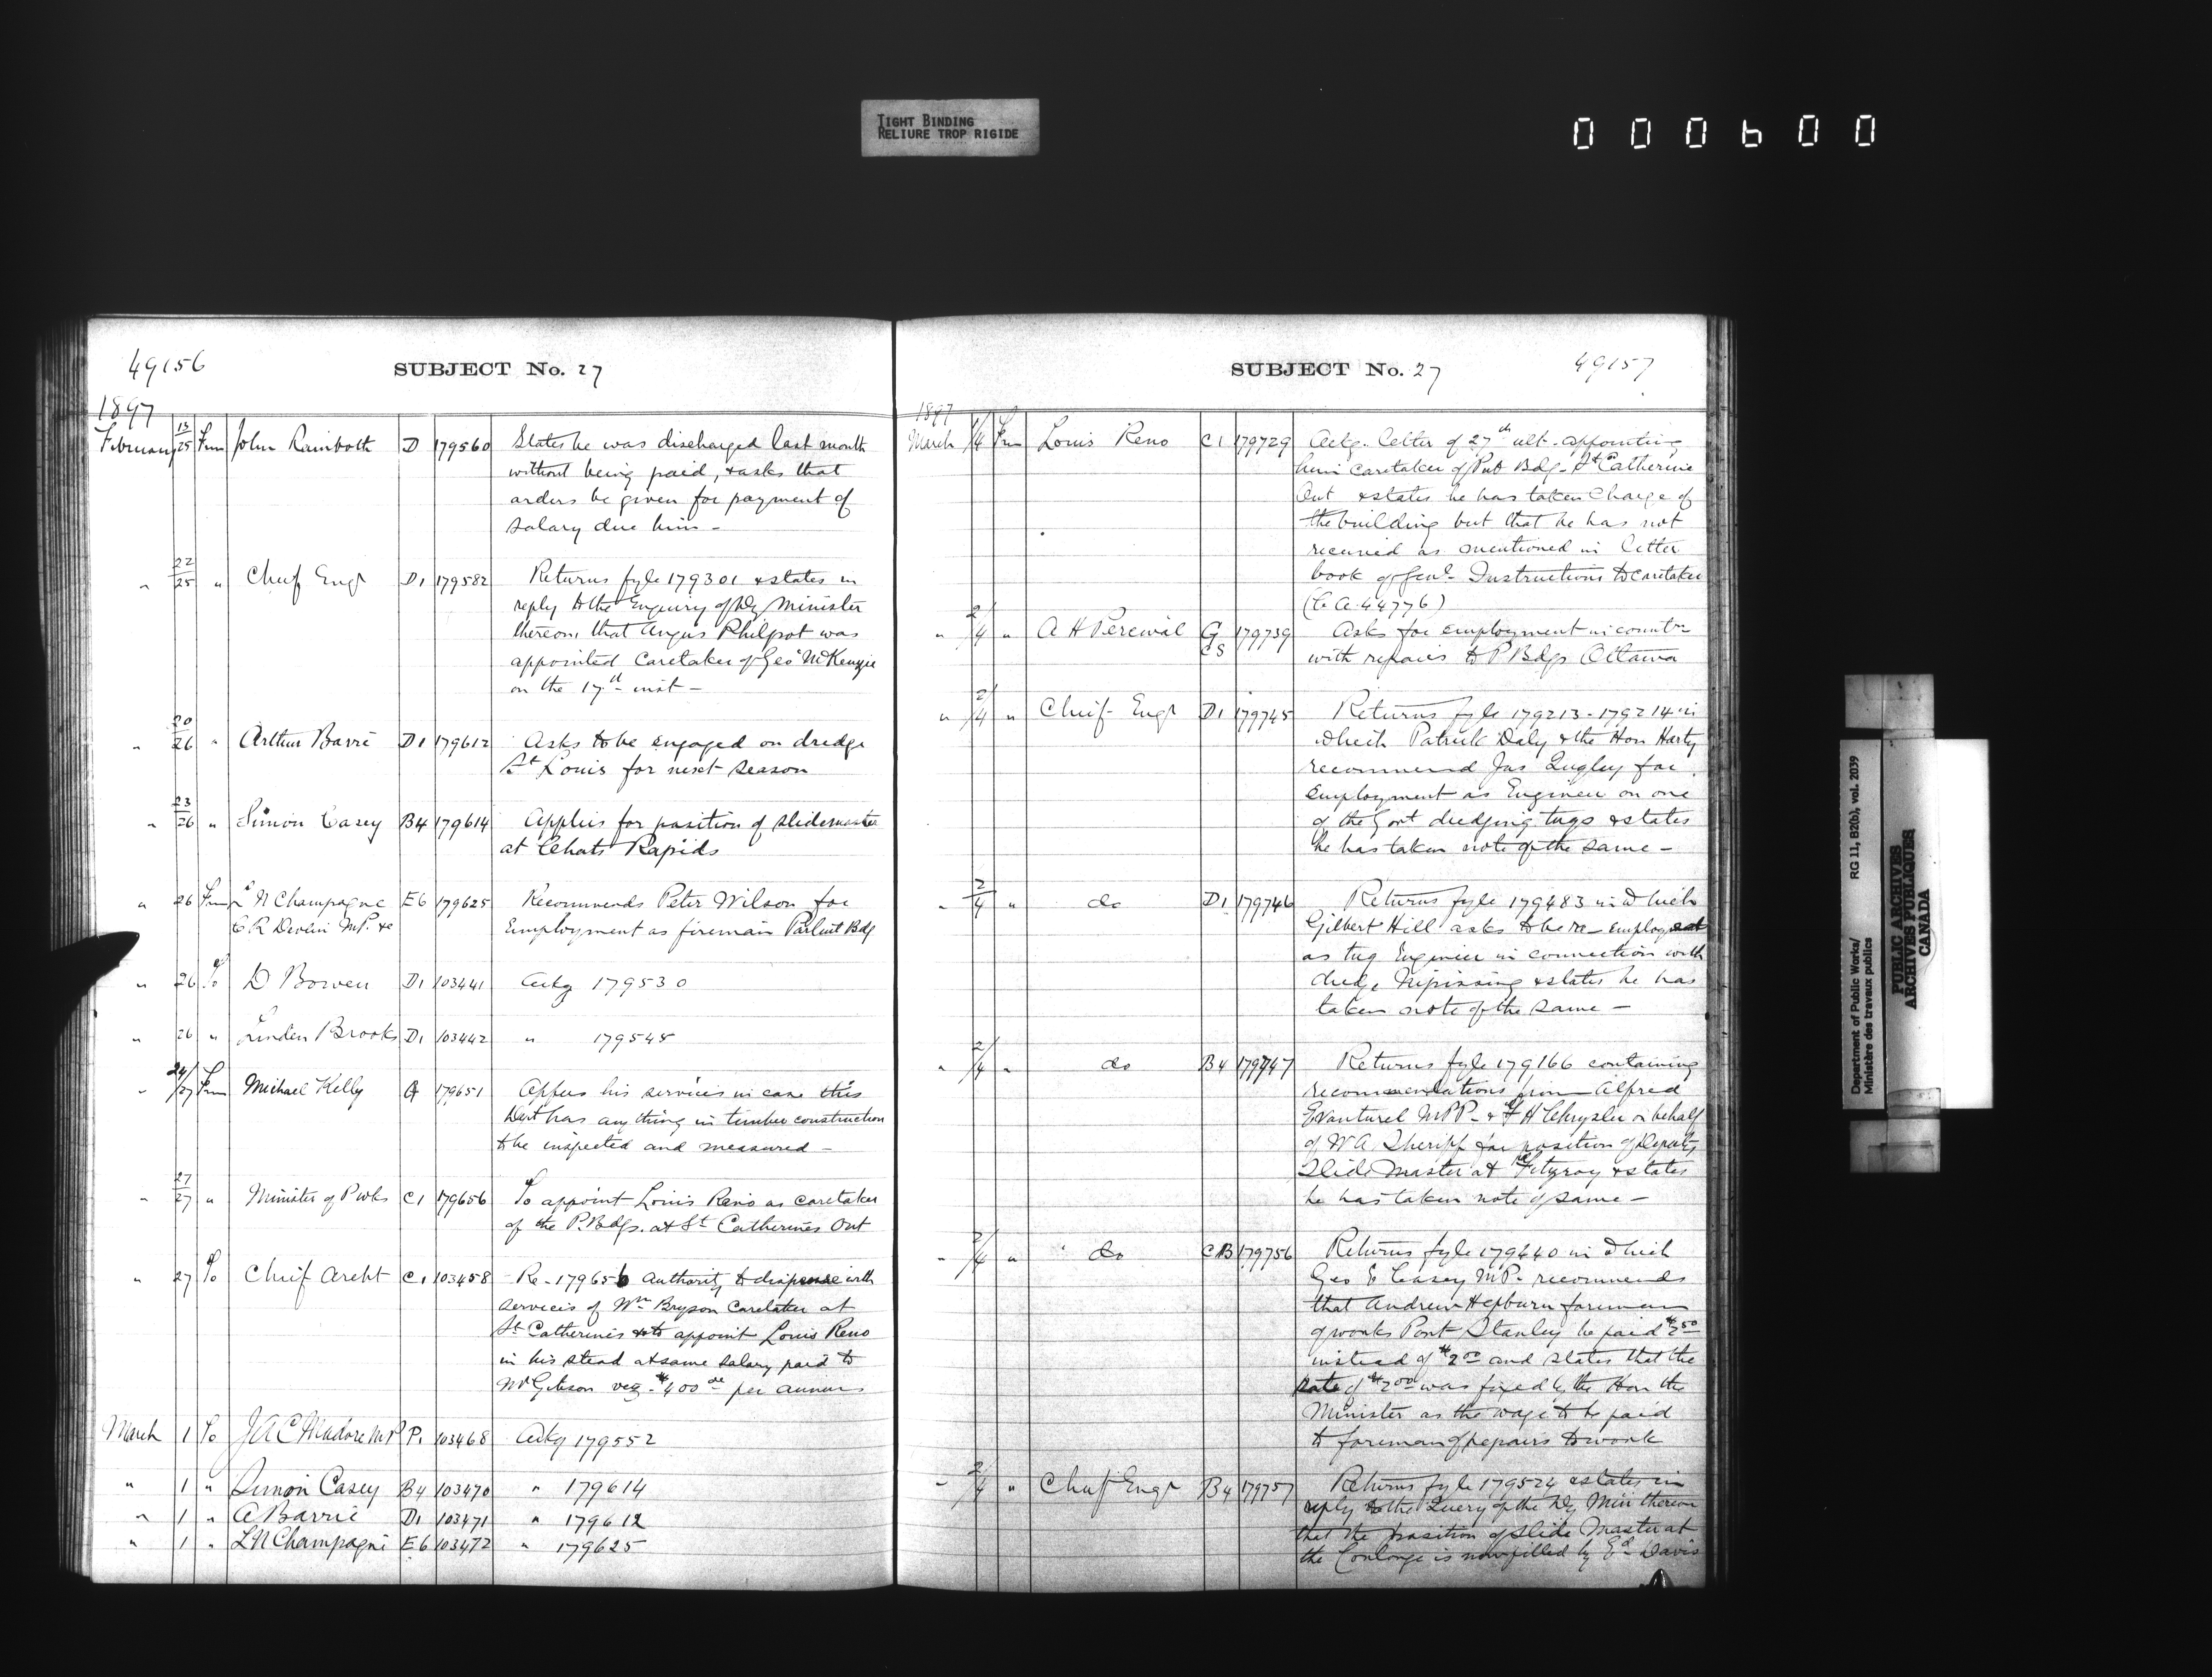 TIGHT BINDING
RELIURE TROP RIGIDE
000600
49156
SUBJECT No. 27
1897
February 13/25 Frm John Rainboth D 179560 States he was discharged last month
without being paid, & asks that
orders be given for payment of
salary due him -
" 22/25 " Chief Engr D1 179582 Returns fyle 179301 & states in
reply to the Enquiry of Dy Minister
thereon, that Angus Philpot was
appointed Caretaker of Geo McKenzie
on the 17th inst -
" 20/26 " Arthur Barré D1 179612 Asks to be engaged on dredge
St Louis for next season
" 23/26 " Simon Casey B4 179614 Applies for position of slidemaster
at Chats Rapids
" 26 Frm L N Champagne E6 179625 Recommends Peter Wilson for
C R Devlin M.P. &c Employment as fireman Parliut Bdg
" 26 To D Bowen D1 103441 Ackg 179530
" 26 " Linden Brooks D1 103442 " 179545
" 24/27 Frm Michael Kelly G 179651 Offers his services in case this
Dept has anything in timber construction
to be inspected and measured -
" 27/27 " Minister of P wks C1 179656 To appoint Louis Reno as caretaker
of the P. Bdgs. at St Catherines Ont
" 27 To Chief Archt C1 103458 Re - 179656 Authority to dispense with
services of Wm Bryson Caretaker at
St Catherines & to appoint Louis Reno
in his stead at same salary paid to
Mr Gibson viz - $400 per annum
March 1 To J A C Madore M P P1 103468 Ackg 179552
" 1 " Simon Casey B4 103470 " 179614
" 1 " A Barrié D1 103471 " 179612
" 1 " L N Champagne E6 103472 " 179625
SUBJECT No. 27
49157
1897
March 1/4 Frm Louis Reno C1 179729 Ackg. letter of 27th ult. appointing
him caretaker of Pub Bdg - St Catherine
Ont & states he has taken charge of
the building but that he has not
received as mentioned in letter
book of Genl. Instructions to caretaker
(C A. 44776)
" 2/4 " A H Percival G CS 179739 Asks for employment in countn
with repairs to P Bdgs Ottawa
" 2/4 " Chief Engr D1 179745 Returns fyle 179213 - 179214 in
which Patrick Daly & the Hon Harty
recommend Jas Quigley for
employment as Engineer on one
of the Govt dredging tugs & states
he has taken note of the same -
" 2/4 " do D1 179746 Returns fyle 179483 in which
Gilbert Hill asks to be re-employed
as tug Engineer in connection with
dredge Nipissing & states he has
taken note of the same -
" 2/4 " do B4 179747 Returns fyle 179166 containing
recommendations from Alfred
Evanturel MPP - & F H Chrysler on behalf
of W A. Sheriff for position of Deputy
Slide Master at Fitzroy & states
he has taken note of same -
" 2/4 " do CB 179756 Returns fyle 179440 in which
Geo E Casey MP - recommends
that Andrew Hepburn foreman
of works Port Stanley be paid $2 50
instead of $2 00 and states that the
rate of $2 00 was fixed by the Hon the
Minister as the wage to be paid
to foreman of repairs to work
" 2/4 " Chief Engr B4 179757 Returns fyle 179524 & states in
reply to the Query of the Dy Min thereon
that the position of Slide Master at
the Coulonge is now filled by Ed Davis
Department of Public Works/
Ministère des travaux publics
RG 11, B2(b), vol. 2039
PUBLIC ARCHIVES
ARCHIVES PUBLIQUES
CANADA